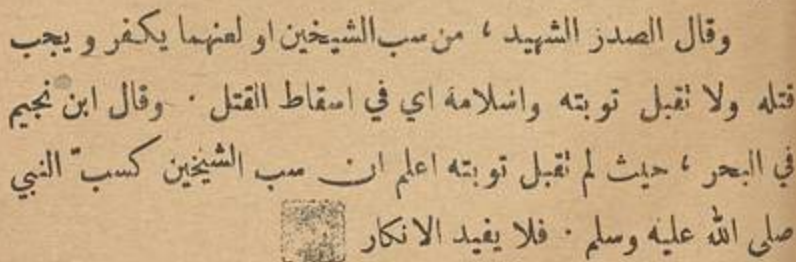 وقال الصدر الشهيد ، من سب الشيخين او لعنهما يكفر و يجب
قتله ولا تقبل توبته واسلامه اي في اسقاط القتل . وقال ابن نجيم
في البحر ، حيث لم تقبل توبته اعلم ان سب الشيخين كسبّ النبي
صلى الله عليه وسلم . فلا يفيد الانكار